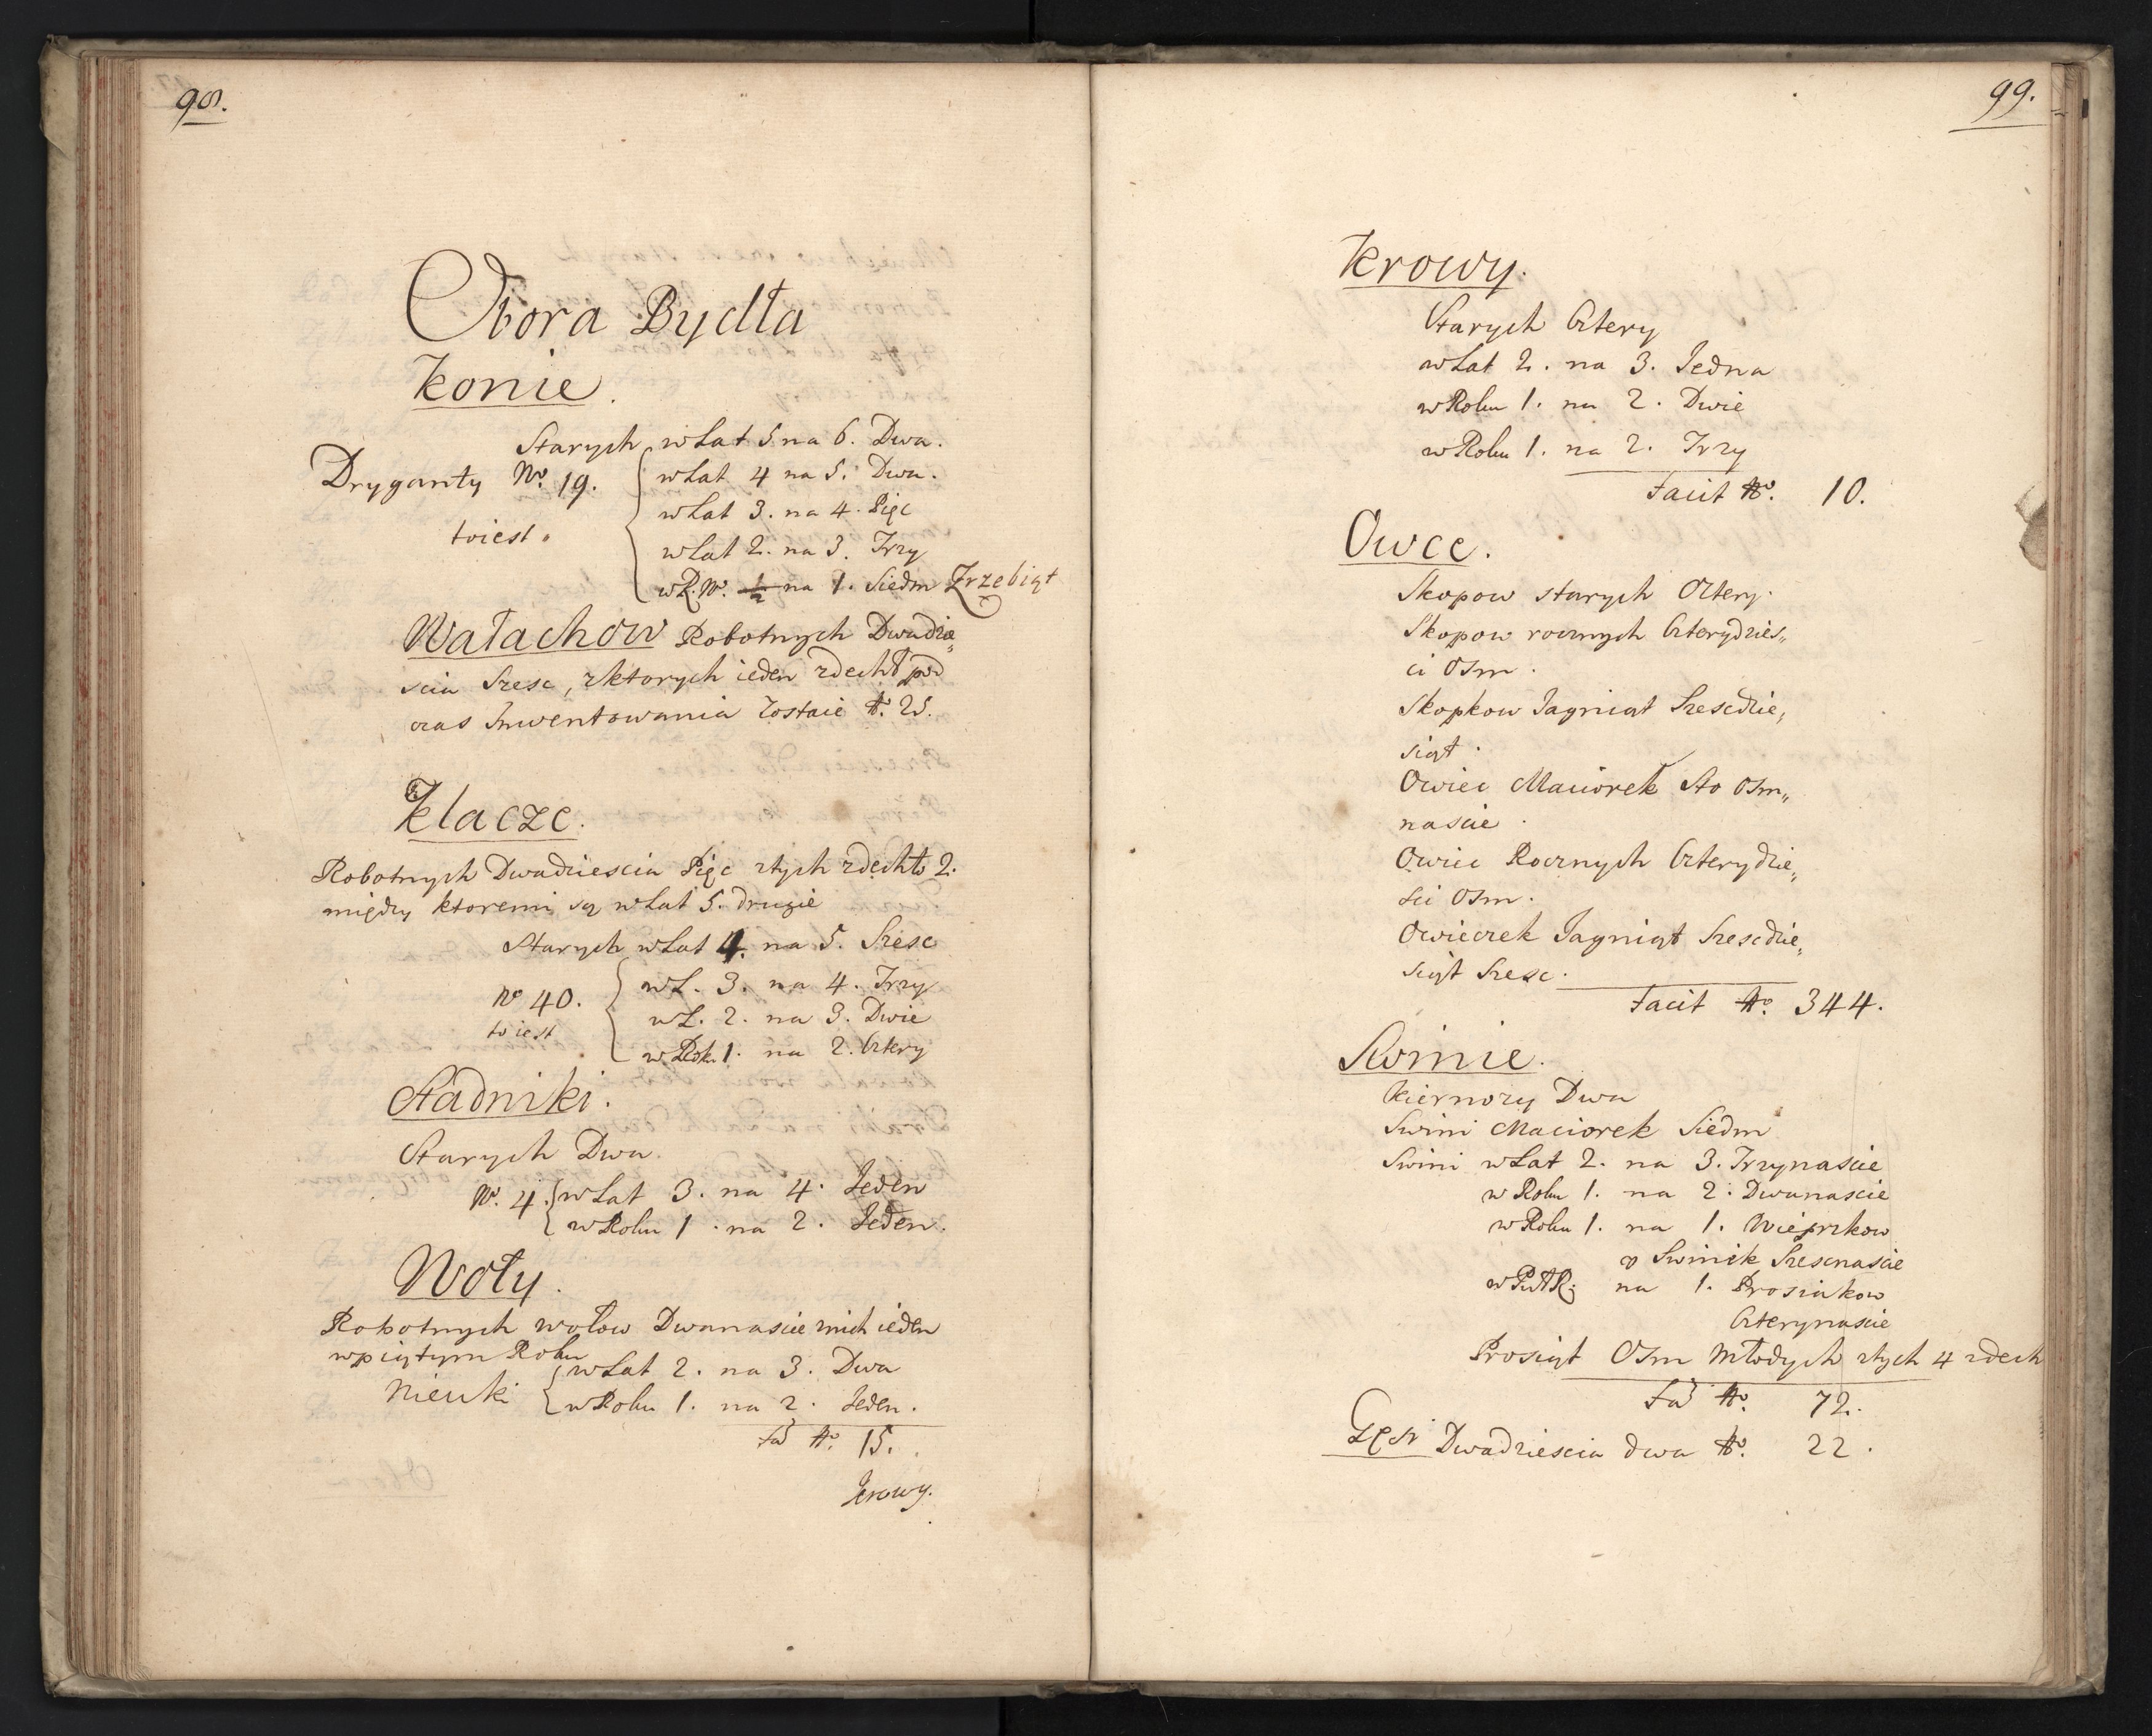 98.
Obora Bydła
Konie.
Starych w Lat 5 na 6. Dwa.
Dryganty No. 19.
w Lat 4 na 5. Dwa.
w Lat 3. na 4. Pięc
toiest.
w Lat 2. na 3. Trzy
w R. No. ½ na 1. Siedm Zrzebiąt
Wałachow Robotnych Dwadzie„
scia Szesc, z ktorych ieden zdechł pod
czas Inwentowania zostaie No. 25.
Klacze.
Robotnych Dwadziescia Pięc z tych zdechło 2.
między ktoremi są w Lat 5. drugie
Starych w Lat 4. na 5. Szesc
w L. 3. na 4. Trzy
No 40.
w L. 2. na 3. Dwie
toiest
w Rok. 1. na 2. Cztery
Stadniki.
Starych Dwa.
No. 4. w Lat 3. na 4. Jeden
w Roku 1. na 2. Jeden.
Woły.
Robotnych wołow Dwanascie z nich ieden
w piątym Roku
w Lat 2. na 3. Dwa
Nieuki
w Roku 1. na 2. Jeden.
Fa No. 15.
Krowy.
99.
Krowy.
Starych Cztery
w Lat 2. na 3. Jedna
w Roku 1. na 2. Dwie
w Roku 1. na 2. Trzy
Facit No. 10.
Owce.
Skopow starych Cztery.
Skopow rocznych Czterydzies„
ci Osm.
Skopkow Jagniąt Szescdzie„
siąt.
Owiec Maciorek Sto Osm„
nascie.
Owiec Rocznych Czterydzie„
sci Osm.
Owieczek Jagniąt Szescdzie„
siąt Szesc.
Facit No. 344.
Swinie.
Kiernozy Dwa
Swini Maciorek Siedm
Swini w Lat 2. na 3. Trzynascie
w Roku 1. na 2. Dwanascie
w Roku 1. na 1. Wieprzkow
y Swinek Szesnascie
na 1. Prosiakow
Czterynascie
Prosiąt Osm Młodych z tych 4 zdech
Fa No. 72.
Gęsi Dwadziescia dwa No. 22.